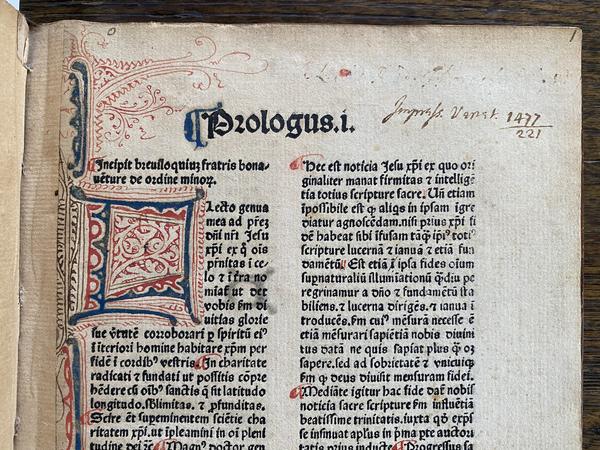 1
Impress. Venet. 1477
221
Prologus.i.
Incipit breuiloquiuʒ fratris bona-
uēture de ordine minoꝝ.
lecto genua
mea ad p̄reʒ
dñi nr̄i Jesu
xp̄i ex q̊ ois
p̄nitas ī ce-
lo ⁊ ī t̄ra no
miat̄ ut det
vobis ẜm di
uitias glorie
sue v̄tutē corroborari ꝑ spiritū eiꝰ
ī īteriori homine habitare xp̄m per
fidē ī cordibꝰ vestris. In charitate
radicati ⁊ fundati ut possitis cōpre
hēdere cū oībꝰ sanctis q̄ sit latitudo
longitudo. sblimitas. ⁊ ꝓfunditas.
Scire ēt supeminentem sciētie cha
ritatem xp̄i. ut īpleamini in oī pleni
tudine dei ⁊c̄. Magnꝰ doctor gen
Hec est noticia Jesu xp̄i ex quo ori
ginaliter manat firmitas ⁊ intellige
tia totius scripture sacre. Un̄ etiam
īpossibile est ꝙ aliqs in ipsam īgre
diatur agnoscēdam. nisi prius xp̄i fi
dē habeat sibi īfusam tāꝙ̄ īpiꝰ totiꝰ
scripture lucernā ⁊ ianuā ⁊ etiā fu
damētū. Est etiā ī ipsa fides oīum
suꝑnaturaliū illuminationū q̄diu pe
regrinamur a dño ⁊ fundamētū sta
biliens. ⁊ lucerna dirigēs. ⁊ ianua ī
troducēs. ẜm cuiꝰ mēsurā necesse ē
etiā mēsurari sapiētiā nobis diuini
tus datā ne quis sapiat plus q̄ oʒ
sapere. sed ad sobrietatē ⁊ vnicuiqꝫ
ẜm ꝙ deus diuisit mensuram fidei.
Mediāte igitur hac fide dat̄ nobis
noticia sacre scripture ẜm īfluētiā
beatissime trinitatis. iuxta qd̄ exp̄sse
se insinuat apl̄us in p̄ma pte auctori
tatis prius inducte. Progressus sa